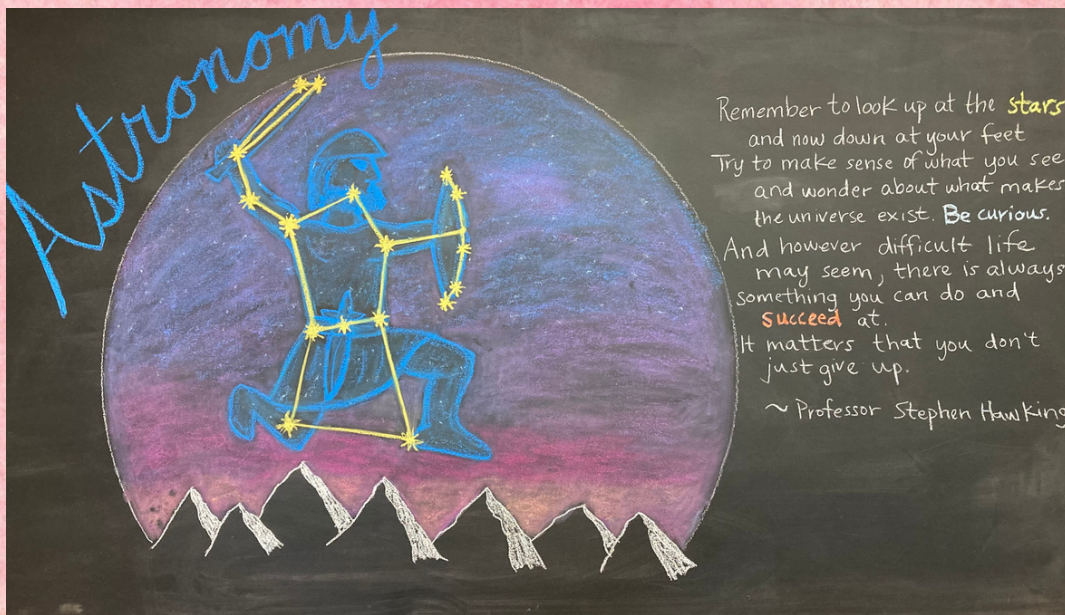 Astronomy
Remember to look up at the stars
and now down at your feet
Try to make sense of what you see
and wonder about what makes
the universe exist. Be curious.
And however difficult life
may seem, there is always
something you can do and
succeed at.
It matters that you don't
just give up.
~ Professor Stephen Hawking